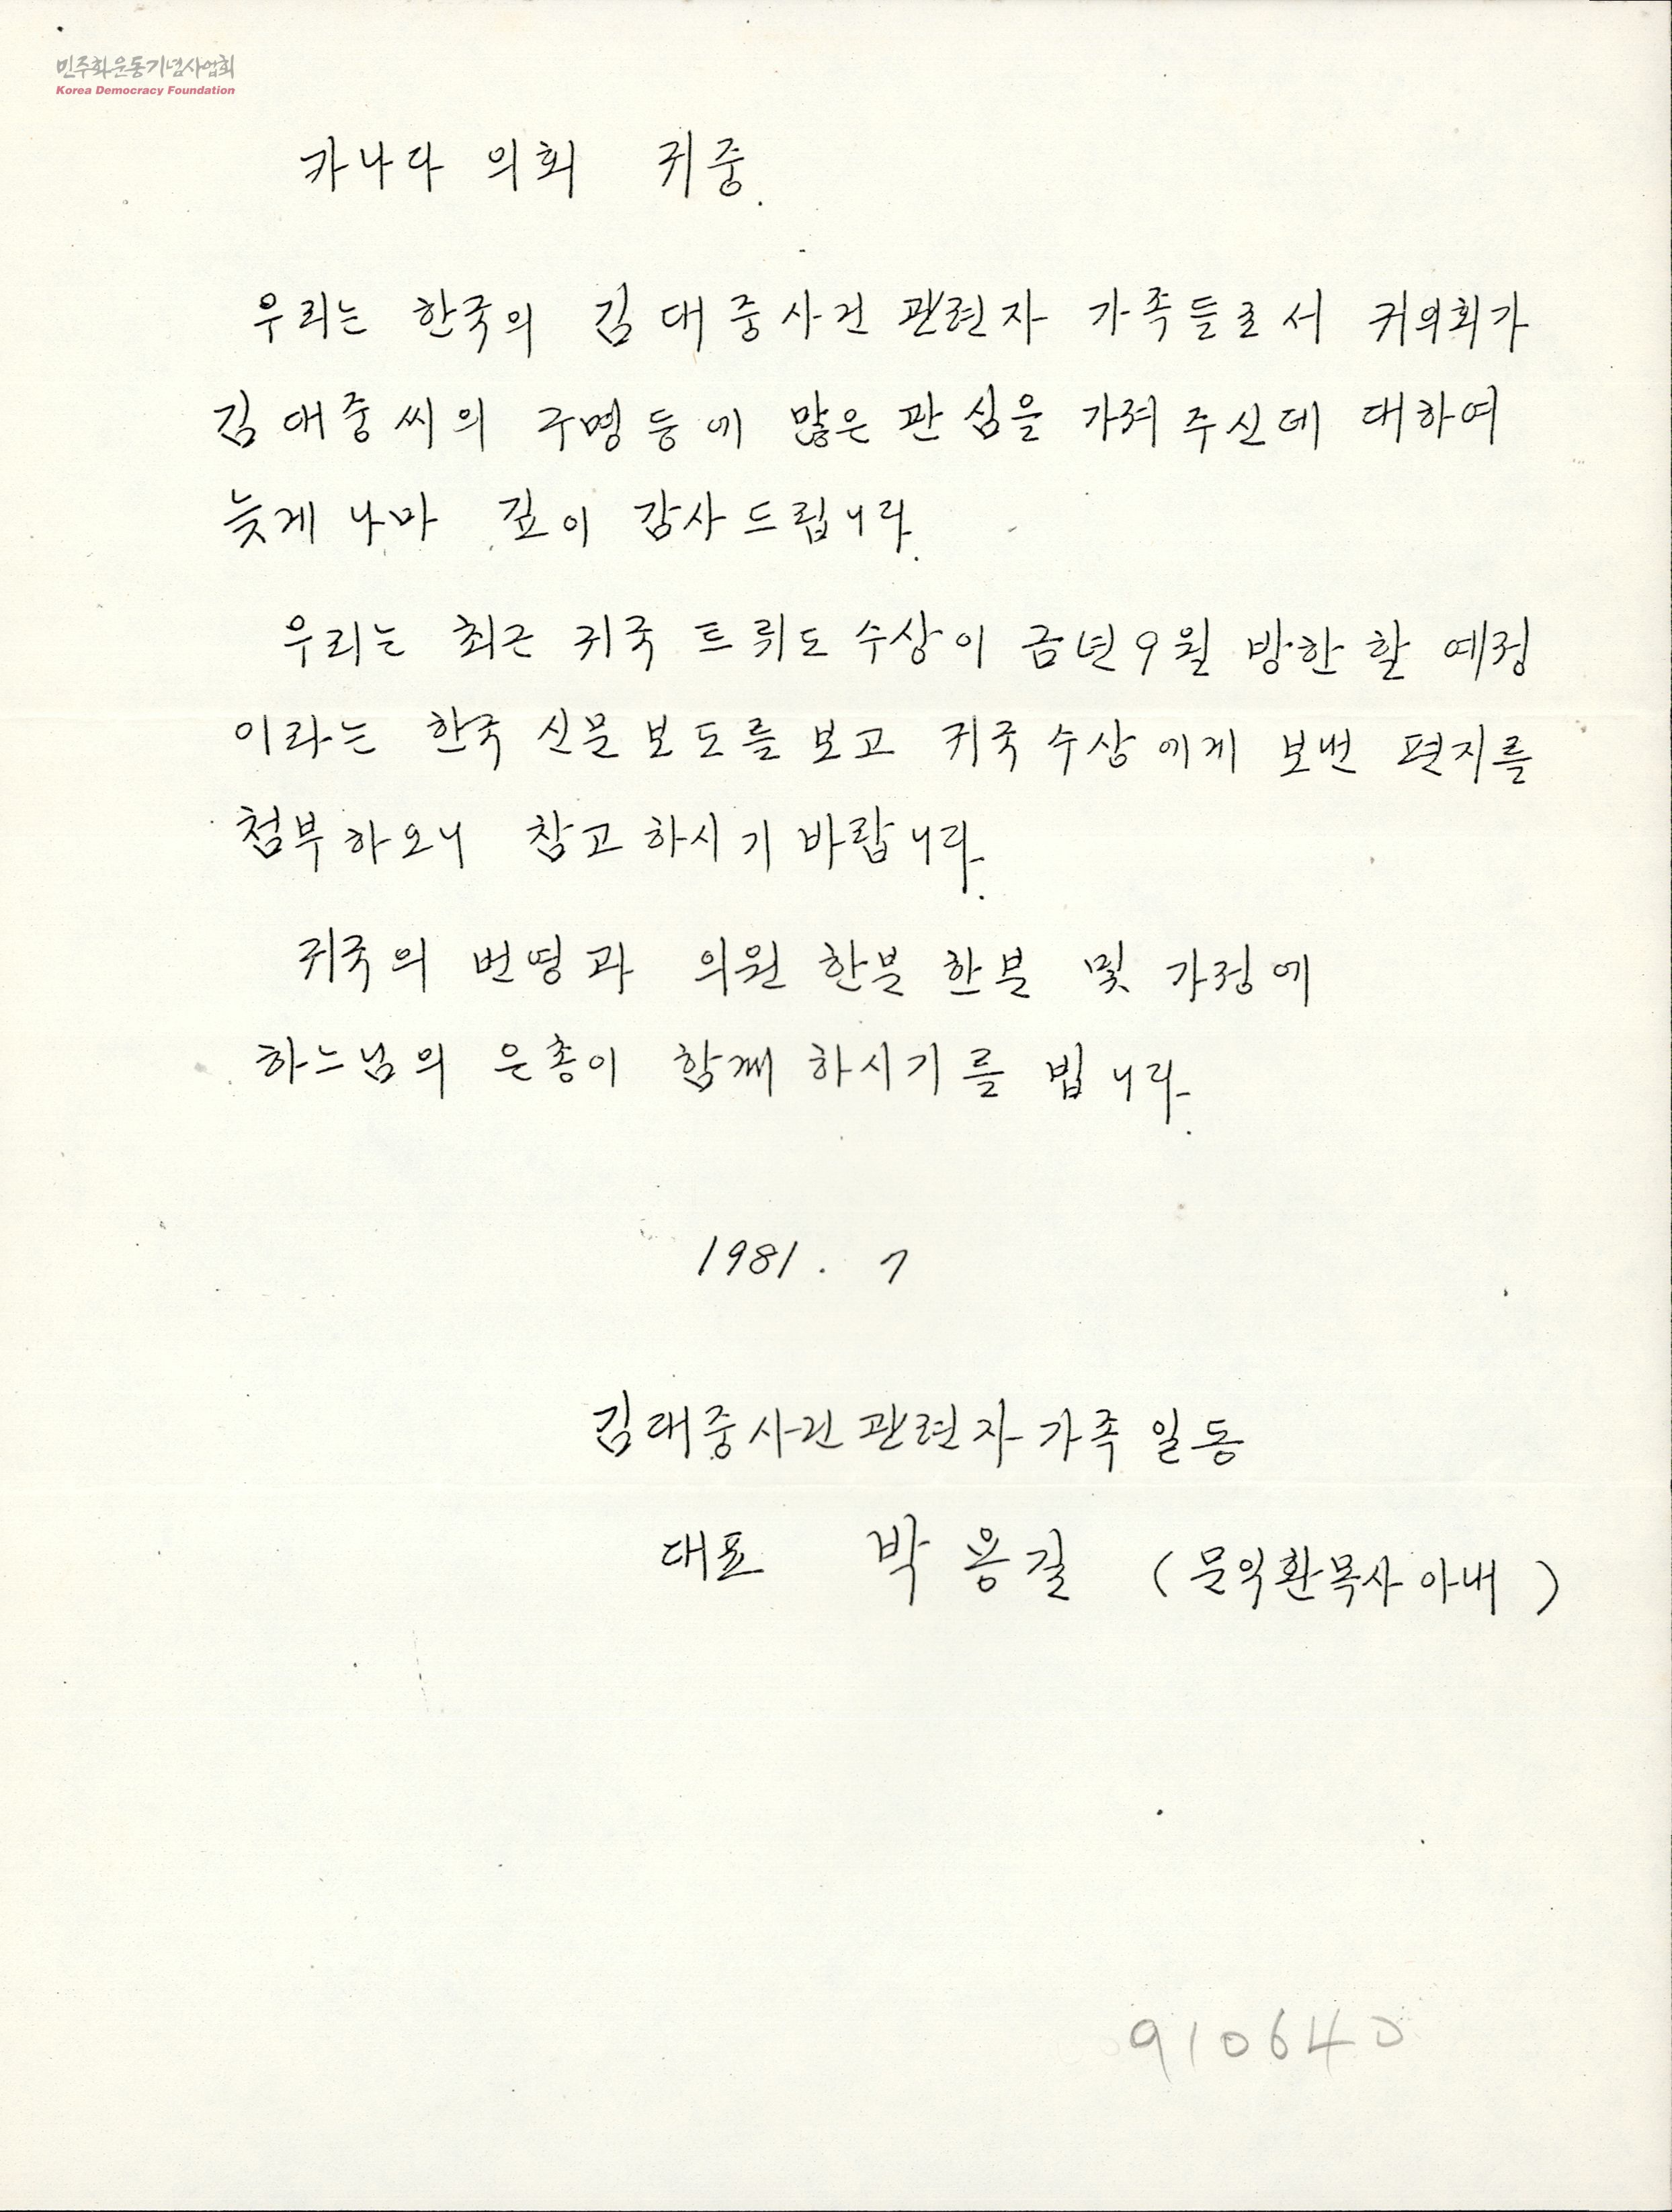 민주화운동기념사업회
Korea Democracy Foundation
카나다 의회 귀중.
우리는 한국의 김대중사건 관련자 가족들로서 귀의회가
김대중씨의 구명등에 많은 관심을 가져 주신데 대하여
늦게나마 깊이 감사드립니다.
우리는 최근 귀국 트뤼도 수상이 금년 9월 방한 할 예정
이라는 한국 신문보도를 보고 귀국 수상에게 보낸 편지를
첨부하오니 참고하시기 바랍니다.
귀국의 번영과 의원 한분 한분 및 가정에
하느님의 은총이 함께 하시기를 빕니다.
1981. 7
김대중사건 관련자 가족 일동
대표 박용길 (문익환목사 아내)
910640